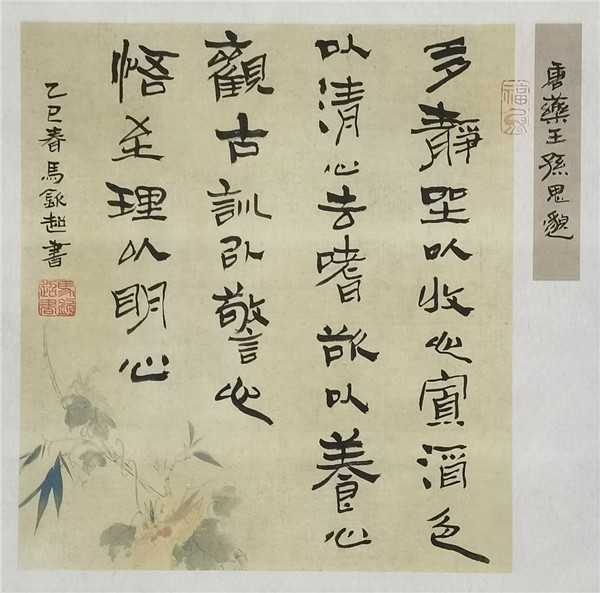 唐藥王孫思邈
多靜坐以收心寡酒色
以清心去嗜欲以養心
觀古訓以警心
悟至理以明心
乙巳春馬超書